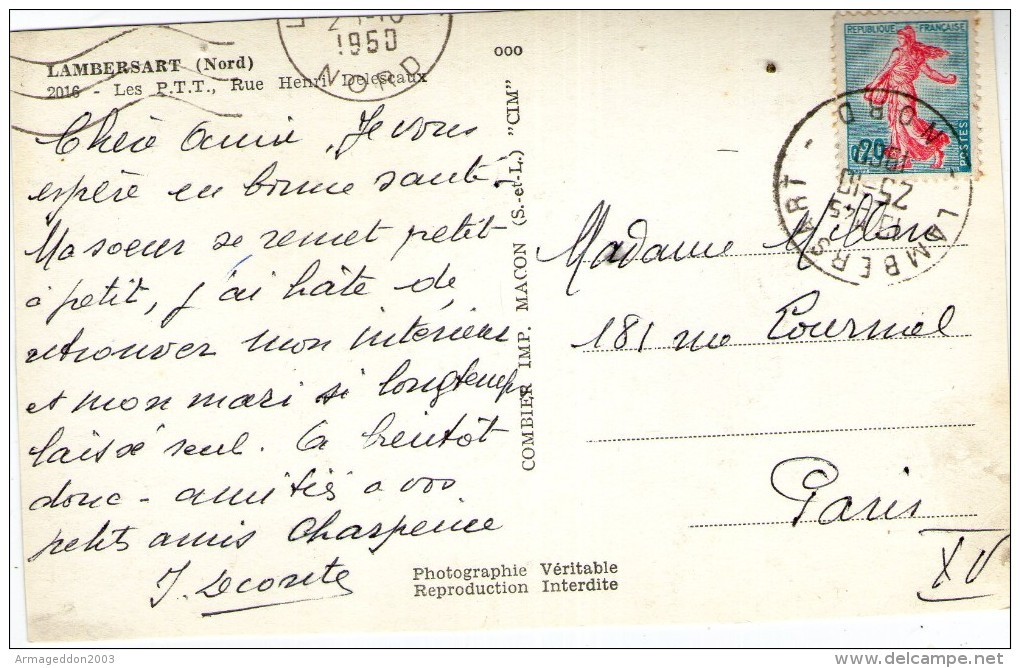 1950
NORD
ooo
LAMBERSART (Nord)
2016 - Les P.T.T., Rue Henri Delescaux
Chère amie, Je vous
espère en bonne santé
Ma soeur se remet petit
à petit, j'ai hâte de
retrouver mon intérieur
et mon mari si longtemps
laissé seul. A bientôt
donc - amitiés à vos
petits amis Charpencie
J. Deconte
COMBIER IMP. MACON (S.-et-L.) "CIM"
Photographie Véritable
Reproduction Interdite
REPUBLIQUE FRANÇAISE
POSTES
LAMBERSART - NORD
25-10
Madame
181 rue
Paris
XV
Armageddon2003
delcampe.net